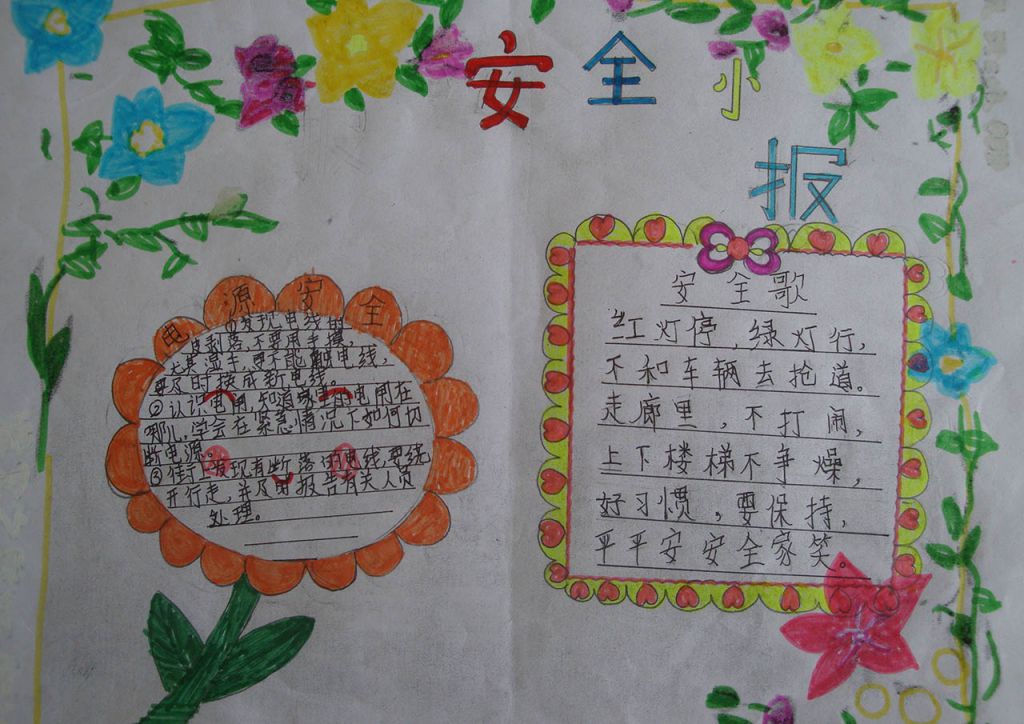 安全小
报
电源安全
①发现电线
剥落,不要用手摸,
尤其湿手,更不能触电线,
要及时换成新电线。
②认识电闸,知道家里的电闸在
哪儿,学会在紧急情况下如何切
断电源。
③街上发现有断落的电线,要绕
开行走,并及时报告有关人员
处理。
安全歌
红灯停,绿灯行,
不和车辆去抢道。
走廊里,不打闹,
上下楼梯不争燥,
好习惯,要保持,
平平安安全家笑。